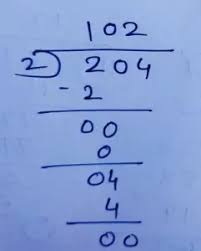 102
2) 204
- 2
00
0
04
4
00